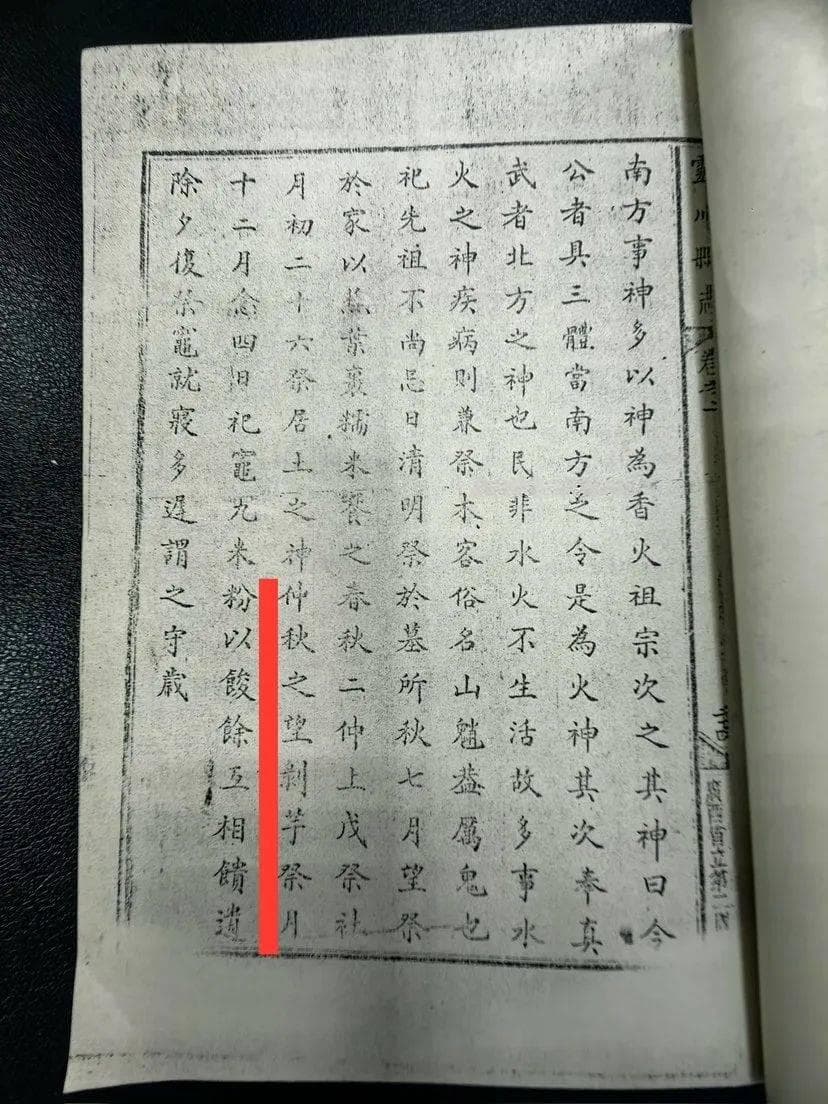 靈川縣志 卷之
南方事神多以神為香火祖宗次之其神曰今
公者具三體當南方之令是為火神其次奉真
武者北方之神也民非水火不生活故多事水
火之神疾病則兼祭木客俗名山魈葢属鬼也
祀先祖不尚忌日清明祭於墓所秋七月望祭
於家以葉裹糯米饗之春秋二仲上戊祭社
月初二十六祭居土之神仲秋之望剝芋祭月
十二月念四日祀竈九米粉以餕餘互相饋遺
除夕復祭竈就寢多遲謂之守歲